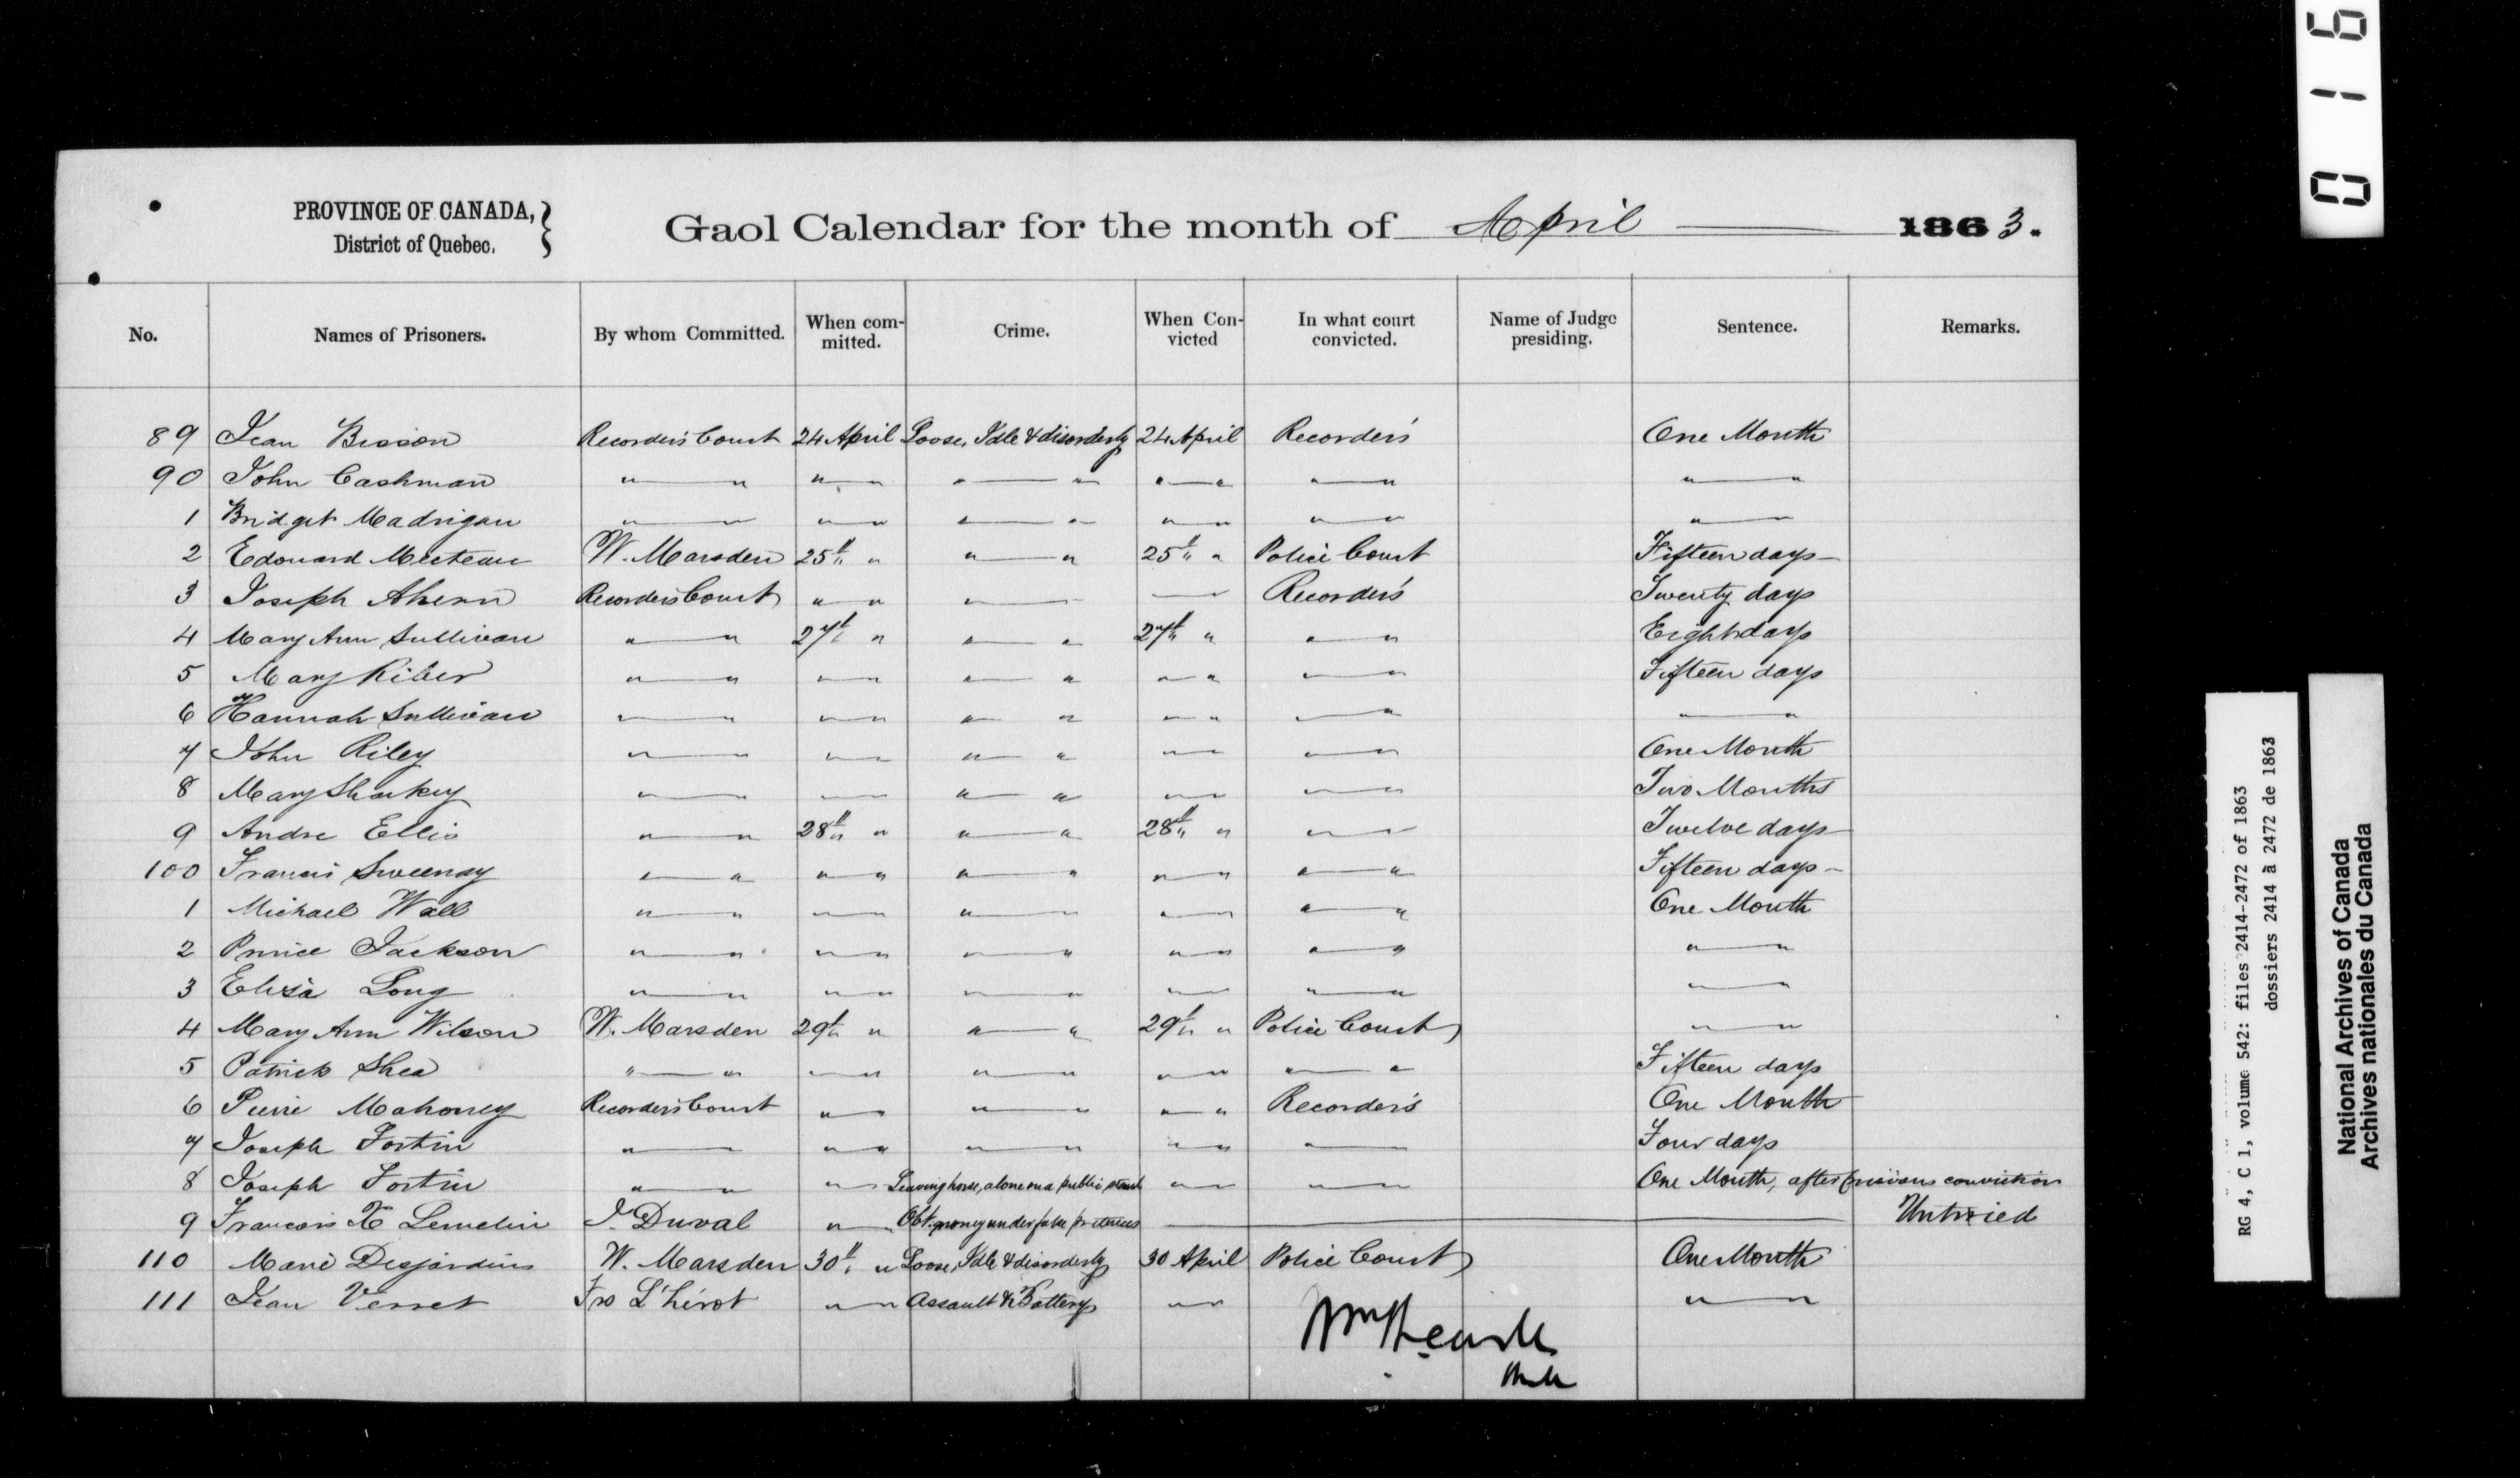 PROVINCE OF CANADA,
District of Quebec.
Gaol Calendar for the month of April 1863.
No. Names of Prisoners. By whom Committed. When committed. Crime. When Convicted In what court convicted. Name of Judge presiding. Sentence. Remarks.
89 Jean Bisson Recorder's Court 24 April Loose, Idle & disorderly 24 April Recorder's One Month
90 John Cashman " " " " " " " " " " " "
1 Bridget Madrigan " " " " " " " " " " "
2 Edouard W. Marsden 25th " " " 25th " Police Court Fifteen days
3 Joseph Ahern Recorder's Court " " " " Recorder's Twenty days
4 Mary Ann Sullivan " " 27th " " " 27th " " " Eight days
5 Mary " " " " " " " " " " Fifteen days
6 Hannah Sullivan " " " " " " " " " " " "
7 John Riley " " " " " " " " " " One Month
8 Mary Sharkey " " " " " " " " " " Two Months
9 Andre Ellis " " 28th " " " 28th " " " Twelve days
100 Francis Sweeney " " " " " " " " " " Fifteen days
1 Michael Wall " " " " " " " " " " One Month
2 Prince Jackson " " " " " " " " " " " "
3 Eliza Long " " " " " " " " " " " "
4 Mary Ann Wilson W. Marsden 29th " " " 29th " Police Court " "
5 Patrick Shea " " " " " " " " " " Fifteen days
6 Pierre Mahoney Recorder's Court " " " " " " Recorder's One Month
7 Joseph Fortin " " " " " " " " " " Four days
8 Joseph Fortin " " " " Leaving horse, alone on a public stand " " " " One Month, after previous conviction
9 Francois X Lemelin J. Duval " Obt. money under false pretences Untried
110 Marie Desjardins W. Marsden 30th " Loose, Idle & disorderly 30 April Police Court One Month
111 Jean Verret Frs L'hérot " " Assault & Battery " " " "
0 1 6
RG 4, C 1, volume 542: files 2414-2472 of 1863
dossiers 2414 à 2472 de 1863
National Archives of Canada
Archives nationales du Canada